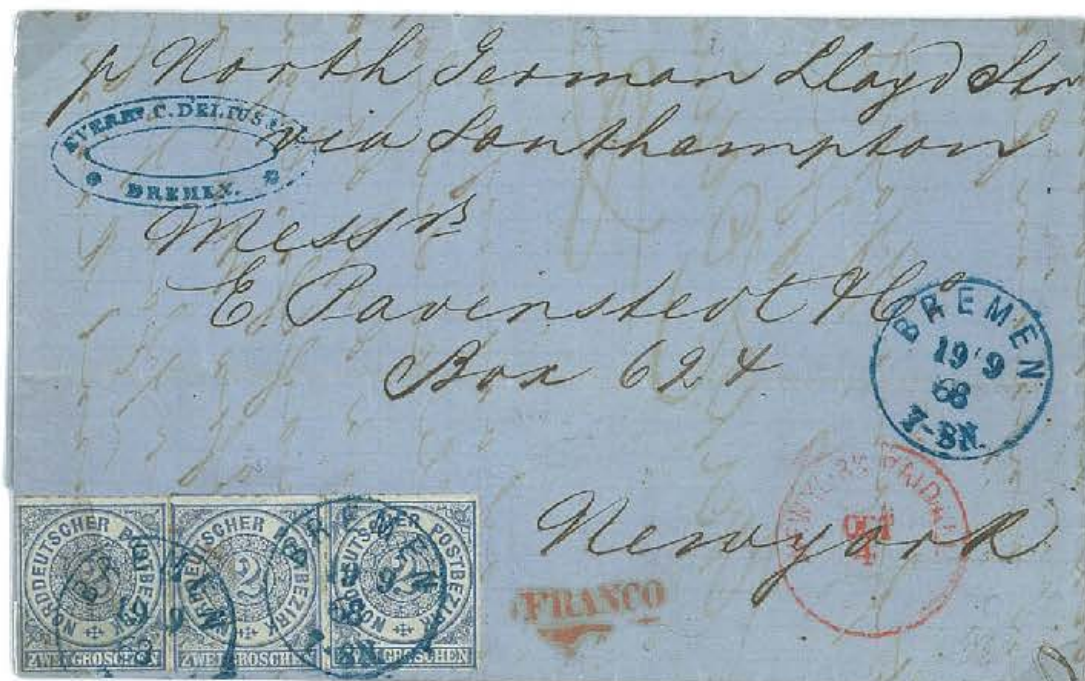 p North German Lloyd Str
via Southampton
EVERHD. C. DELIUS
BREMEN.
Messrs
E. Pavenstedt & Co
Box 624
BREMEN
19 9
68
7-8N.
NEW YORK PAID ALL
OCT
4
Newyork
FRANCO
NORDDEUTSCHER POSTBEZIRK
2
ZWEI GROSCHEN
NORDDEUTSCHER POSTBEZIRK
2
ZWEI GROSCHEN
NORDDEUTSCHER POSTBEZIRK
2
ZWEI GROSCHEN
BREMEN
19 9
68
BREMEN
19 9
68
7-8N.